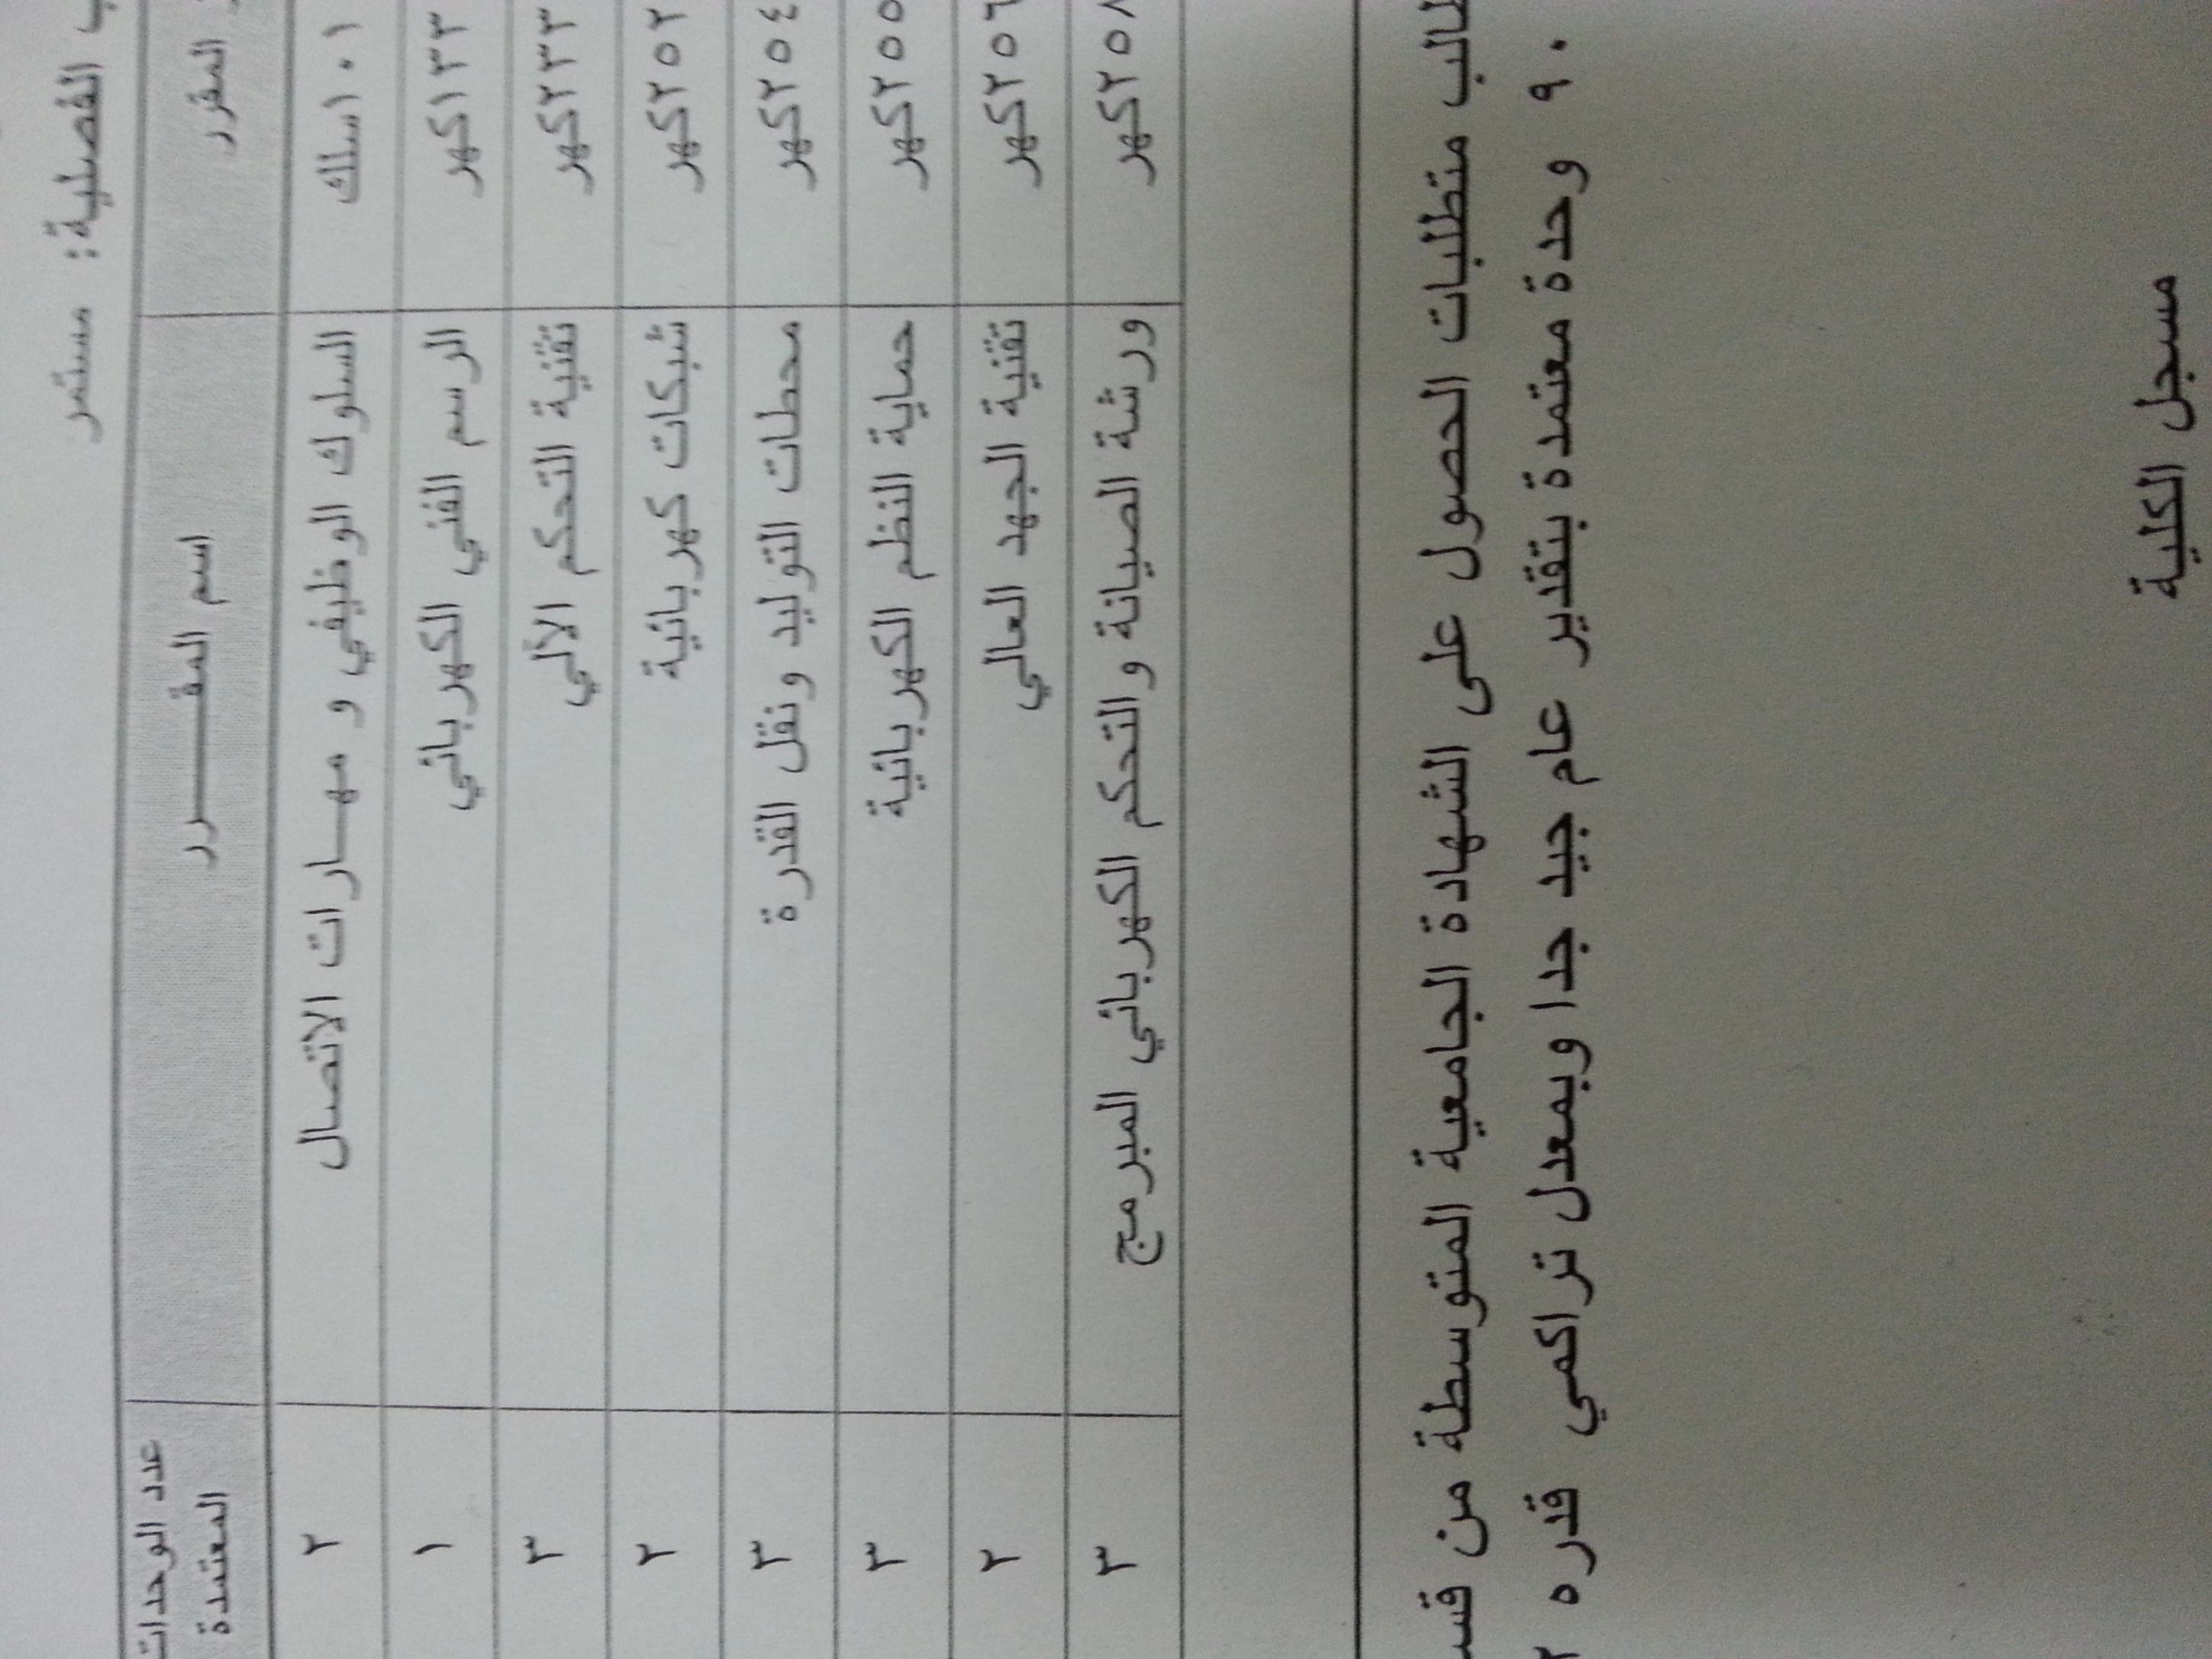 الفصلية: مستمر
المقرر اسم المقــــــرر عدد الوحدات المعتمدة
١٠١سلك السلوك الوظيفي و مهــارات الاتصال ٢
١٣٣كهر الرسم الفني الكهربائي ١
٢٣٣كهر تقنية التحكم الآلي ٣
٢٥٢كهر شبكات كهربائية ٢
٢٥٤كهر محطات التوليد ونقل القدرة ٣
٢٥٥كهر حماية النظم الكهربائية ٣
٢٥٦كهر تقنية الجهد العالي ٢
٢٥٨كهر ورشة الصيانة والتحكم الكهربائي المبرمج ٣
متطلبات الحصول على الشهادة الجامعية المتوسطة من
٩٠ وحدة معتمدة بتقدير عام جيد جدا وبمعدل تراكمي قدره
مسجل الكلية